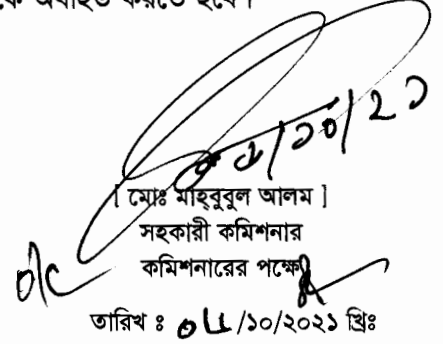 কে অবহিত করতে হবে।
/১০/২১
[ মোঃ মাহ্‌বুবুল আলম ]
সহকারী কমিশনার
কমিশনারের পক্ষে
তারিখ ঃ /১০/২০২১ খ্রিঃ